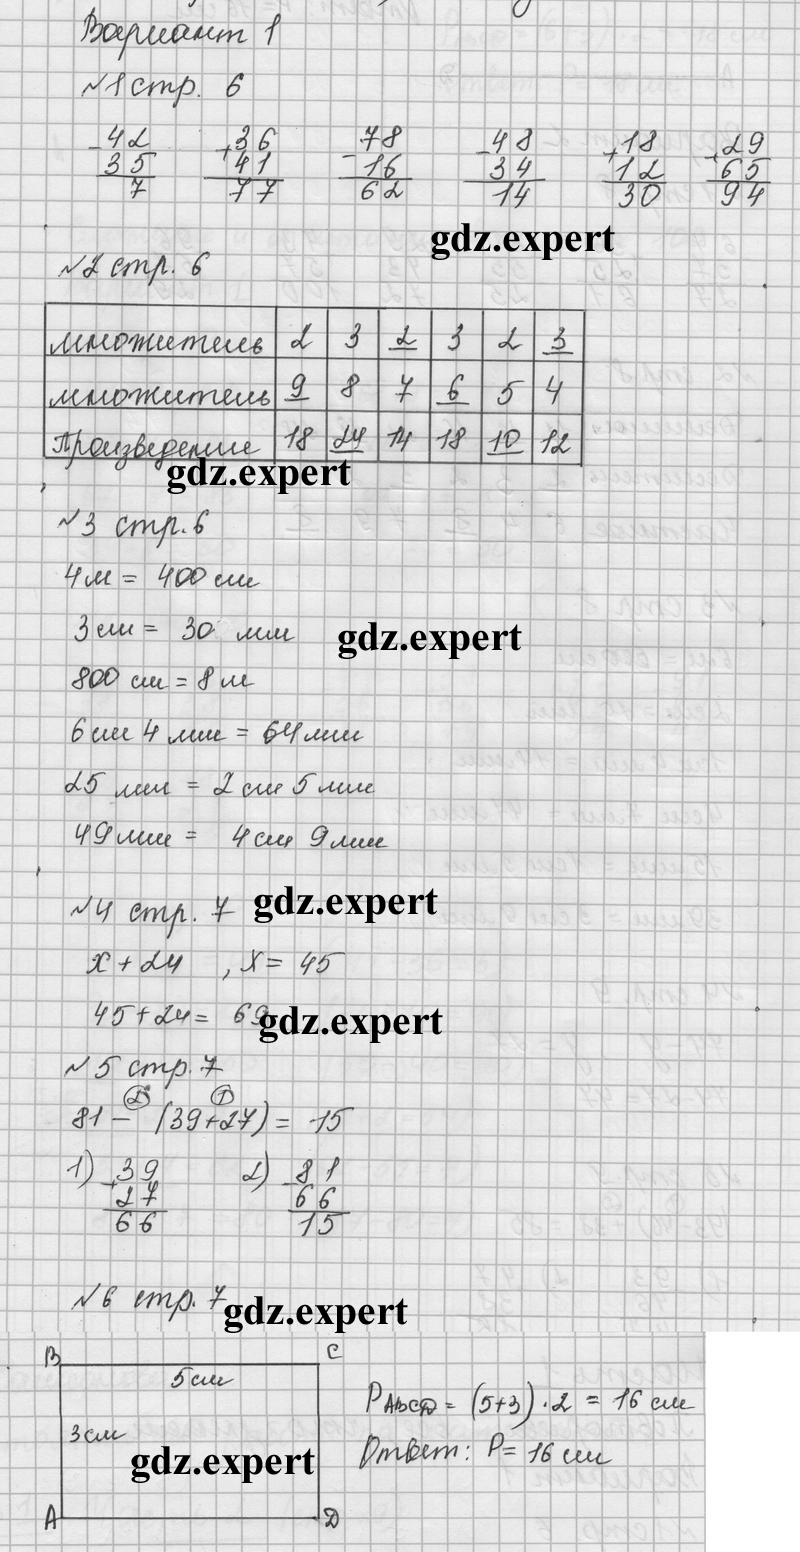 Вариант 1
№1 стр. 6
- 42 + 36 - 78 - 48 + 18 + 29
35 41 16 34 12 65
7 77 62 14 30 94
gdz.expert
№2 стр. 6
множитель 2 3 2 3 2 3
множитель 9 8 7 6 5 4
Произведение 18 24 14 18 10 12
gdz.expert
№3 стр. 6
4м = 400 см
3см = 30 мм
gdz.expert
800 см = 8 м
6см 4 мм = 64мм
25 мм = 2 см 5 мм
49мм = 4см 9мм
№4 стр. 7
gdz.expert
x + 24 , x = 45
45 + 24 = 69
gdz.expert
№5 стр. 7
2 1
81 - (39+27) = 15
1) + 39 2) - 81
27 66
66 15
№6 стр. 7
gdz.expert
B C
5см
PABCD = (5+3) · 2 = 16 см
3см
Ответ: P = 16 см
gdz.expert
A D